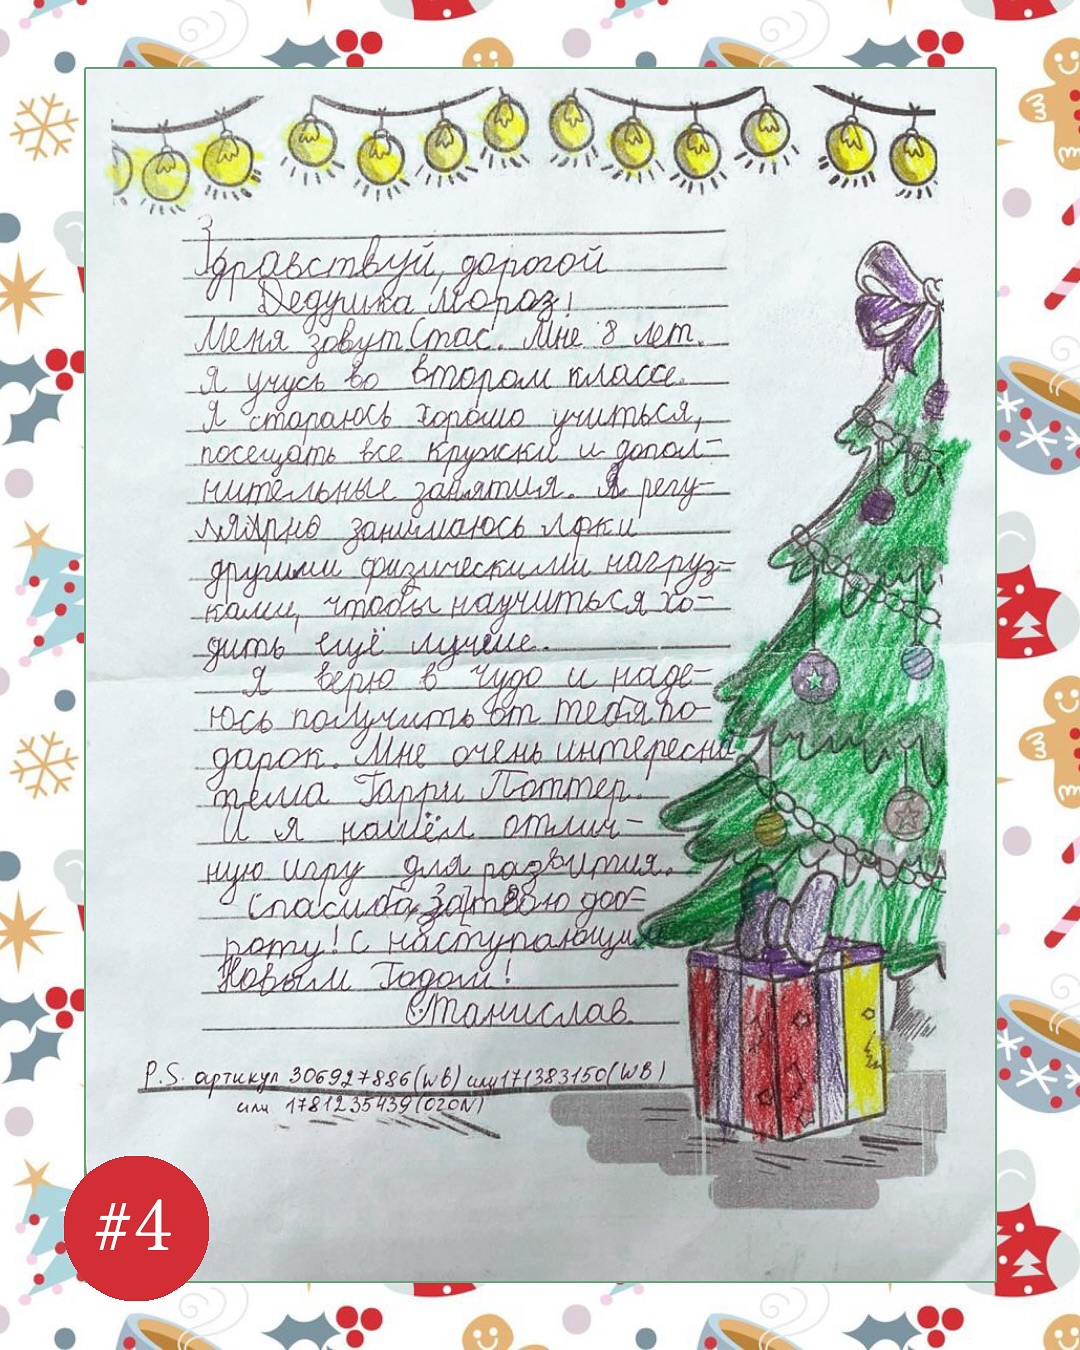 Здравствуй, дорогой
Дедушка Мороз!
Меня зовут Стас. Мне 8 лет.
Я учусь во втором классе.
Я стараюсь хорошо учиться,
посещать все кружки и допол-
нительные занятия. Я регу-
лярно занимаюсь лфки
другими физическими нагруз-
ками, чтобы научиться хо-
дить ещё лучше.
Я верю в чудо и наде-
юсь получить от тебя по-
дарок. Мне очень интересна
тема Гарри Поттер.
И я нашёл отлич-
ную игру для развития.
Спасибо, за твою доб-
роту! С наступающим
Новым Годом!
Станислав.
P.S. артикул 306927886(WB) или 171383150(WB)
или 1781235439(OZON)
#4